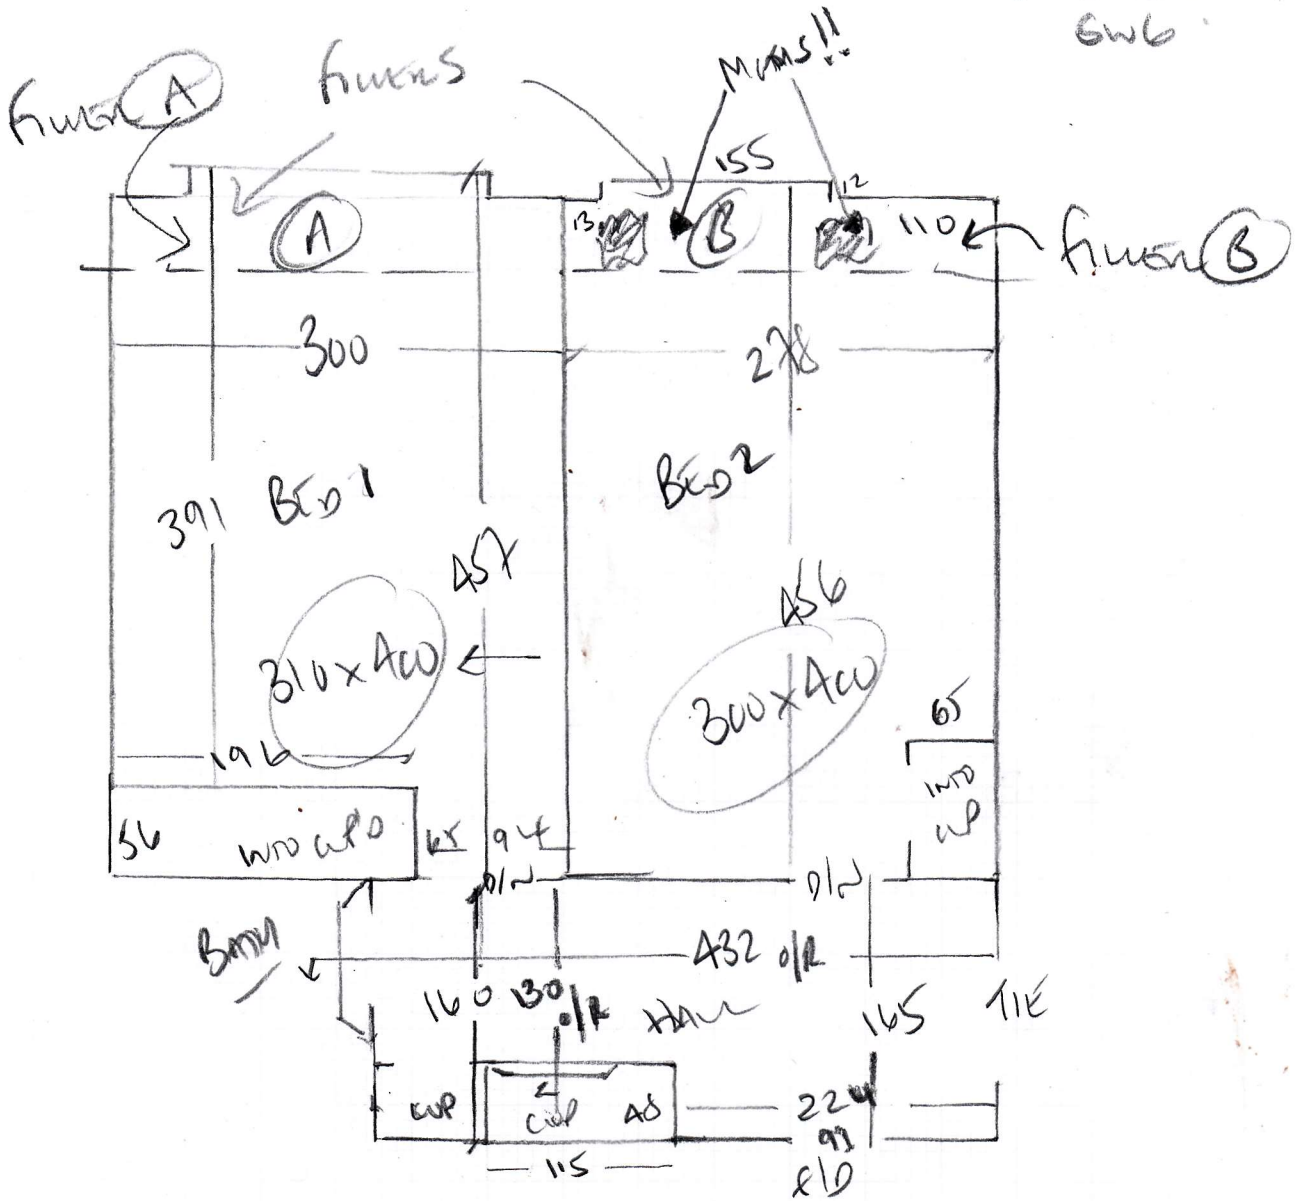 GW6
FILLERS
MUMS!!
FILLER A
155
12
A
13
B
110
FILLER B
300
278
391
BED 1
BED 2
457
456
310 x 400
300 x 400
65
196
INTO
CUP
56
INTO CUPD
65
94
D/W
D/W
BATH
432 O/R
160
130
O/R
HALL
165
TIE
CUP
CUP
48
224
115